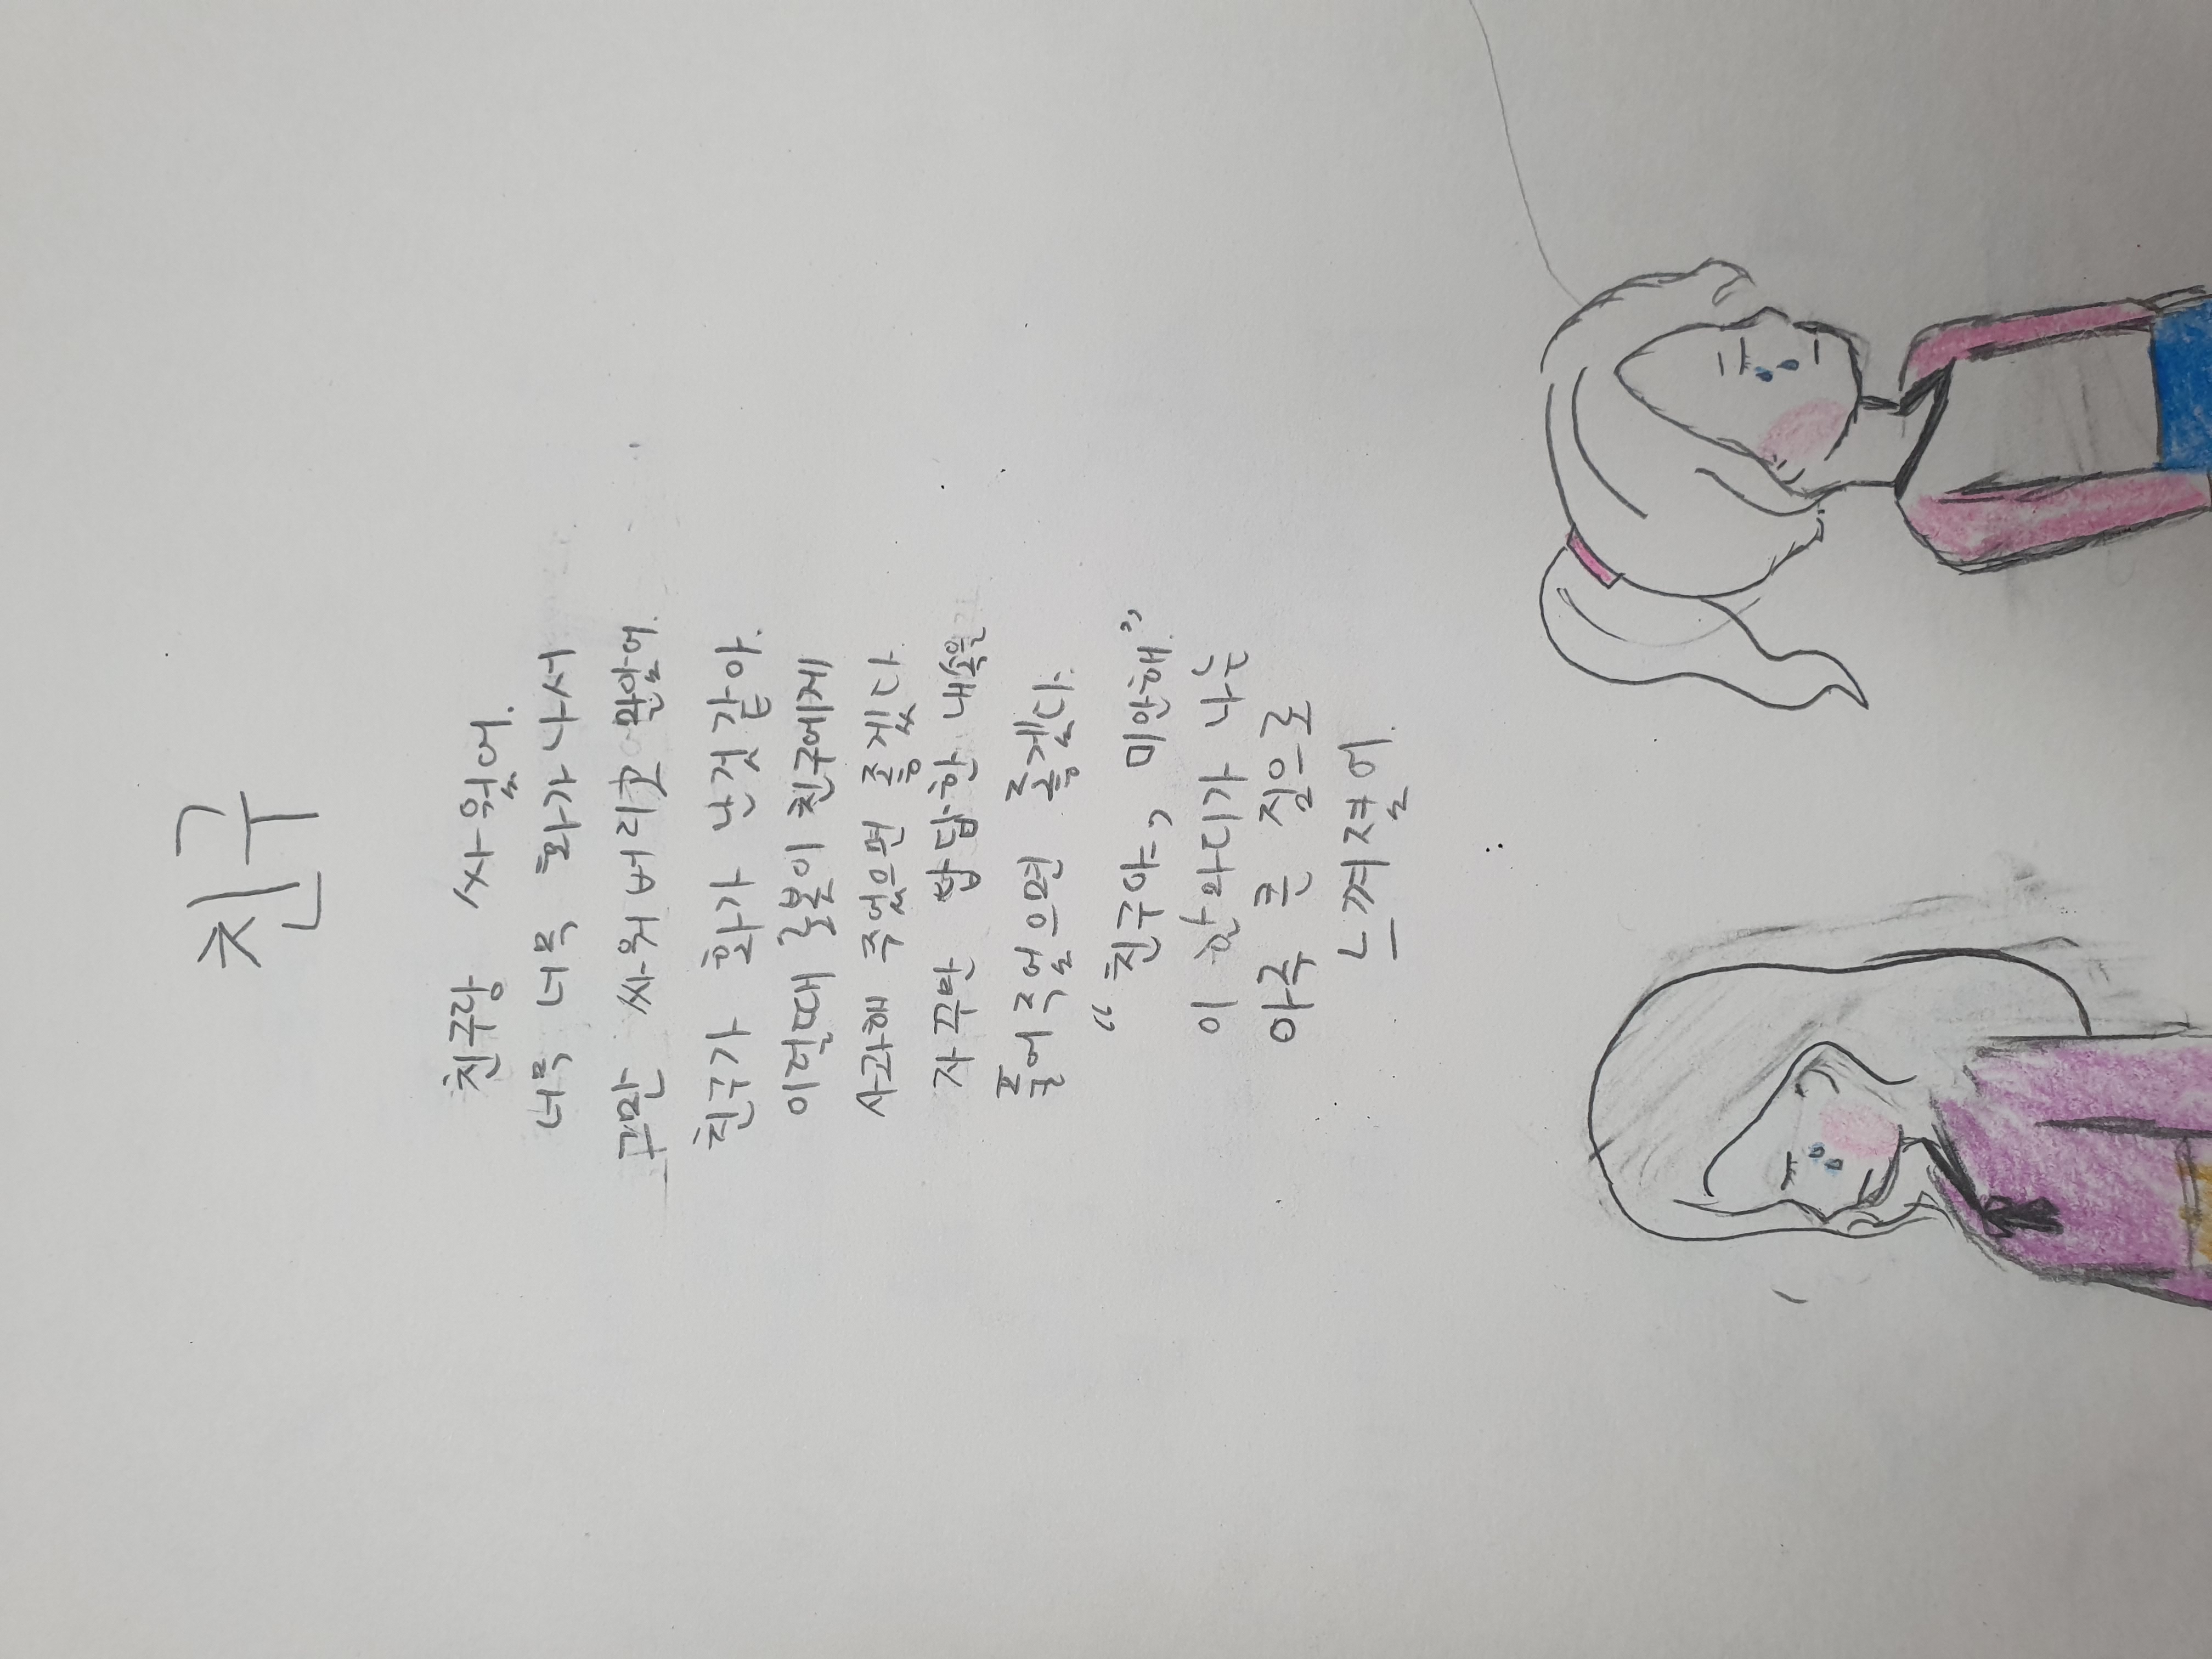 친구
친구랑 싸웠어.
너무 너무 화가 나서
그만 싸워버리고 말았어.
친구가 화가 난것 같아.
이럴때 로봇이 친구에게
사과해 주었으면 좋겠다
자꾸만 답답한 내속을
풀어주었으면 좋겠다.
“친구야, 미안해.”
이 한마디가 나는
아주 큰 짐으로
느껴졌어.